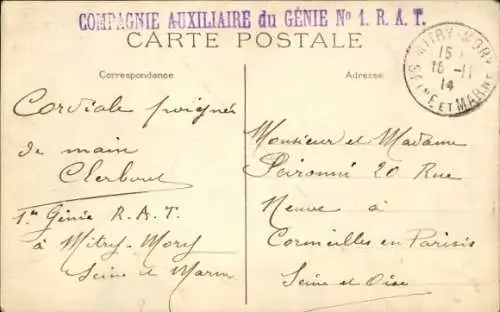 COMPAGNIE AUXILIAIRE du GÉNIE No 1. R. A. T.
CARTE POSTALE
Correspondance
Adresse
MITRY-MORY
15
16 -11
14
SEINE ET MARNE
Cordiale poignée
de main
Clerbout
1er Génie R. A. T.
à Mitry-Mory
Seine et Marne
Monsieur et Madame
20 Rue
Neuve à
Cormeilles en Parisis
Seine et Oise